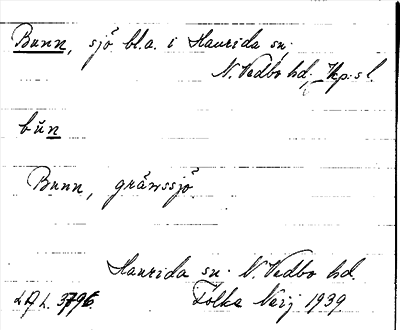 Bunn, sjö bl.a. i Haurida sn.
N. Vedbo hd., Jkp:s l.
bŭn
Bunn, gränssjö
Haurida sn. N. Vedbo hd.
Folke Närj 1939